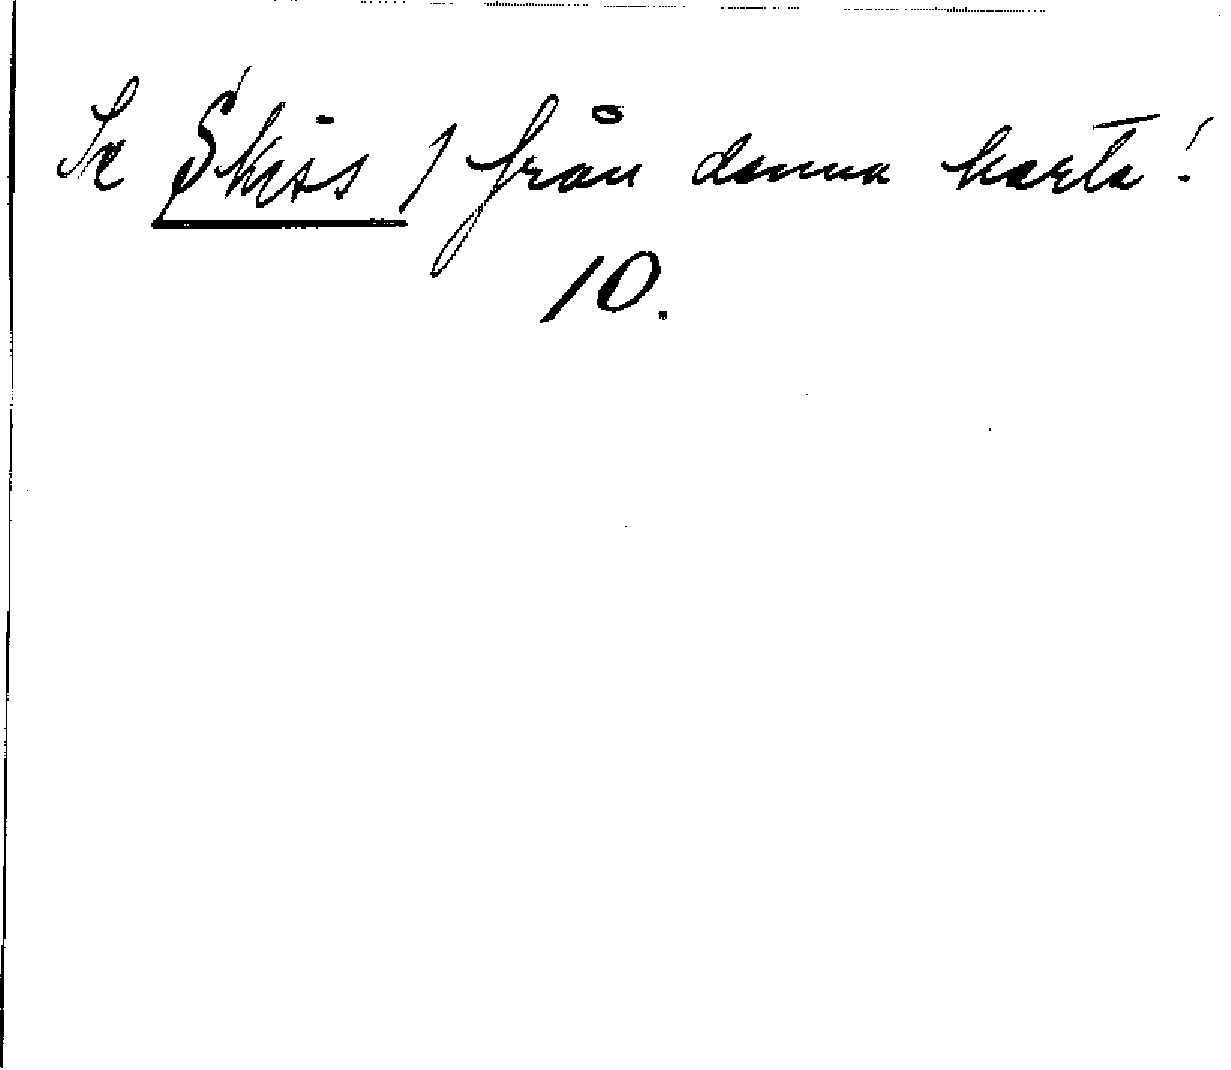 Se Skiss 1 från denna karta!
10.